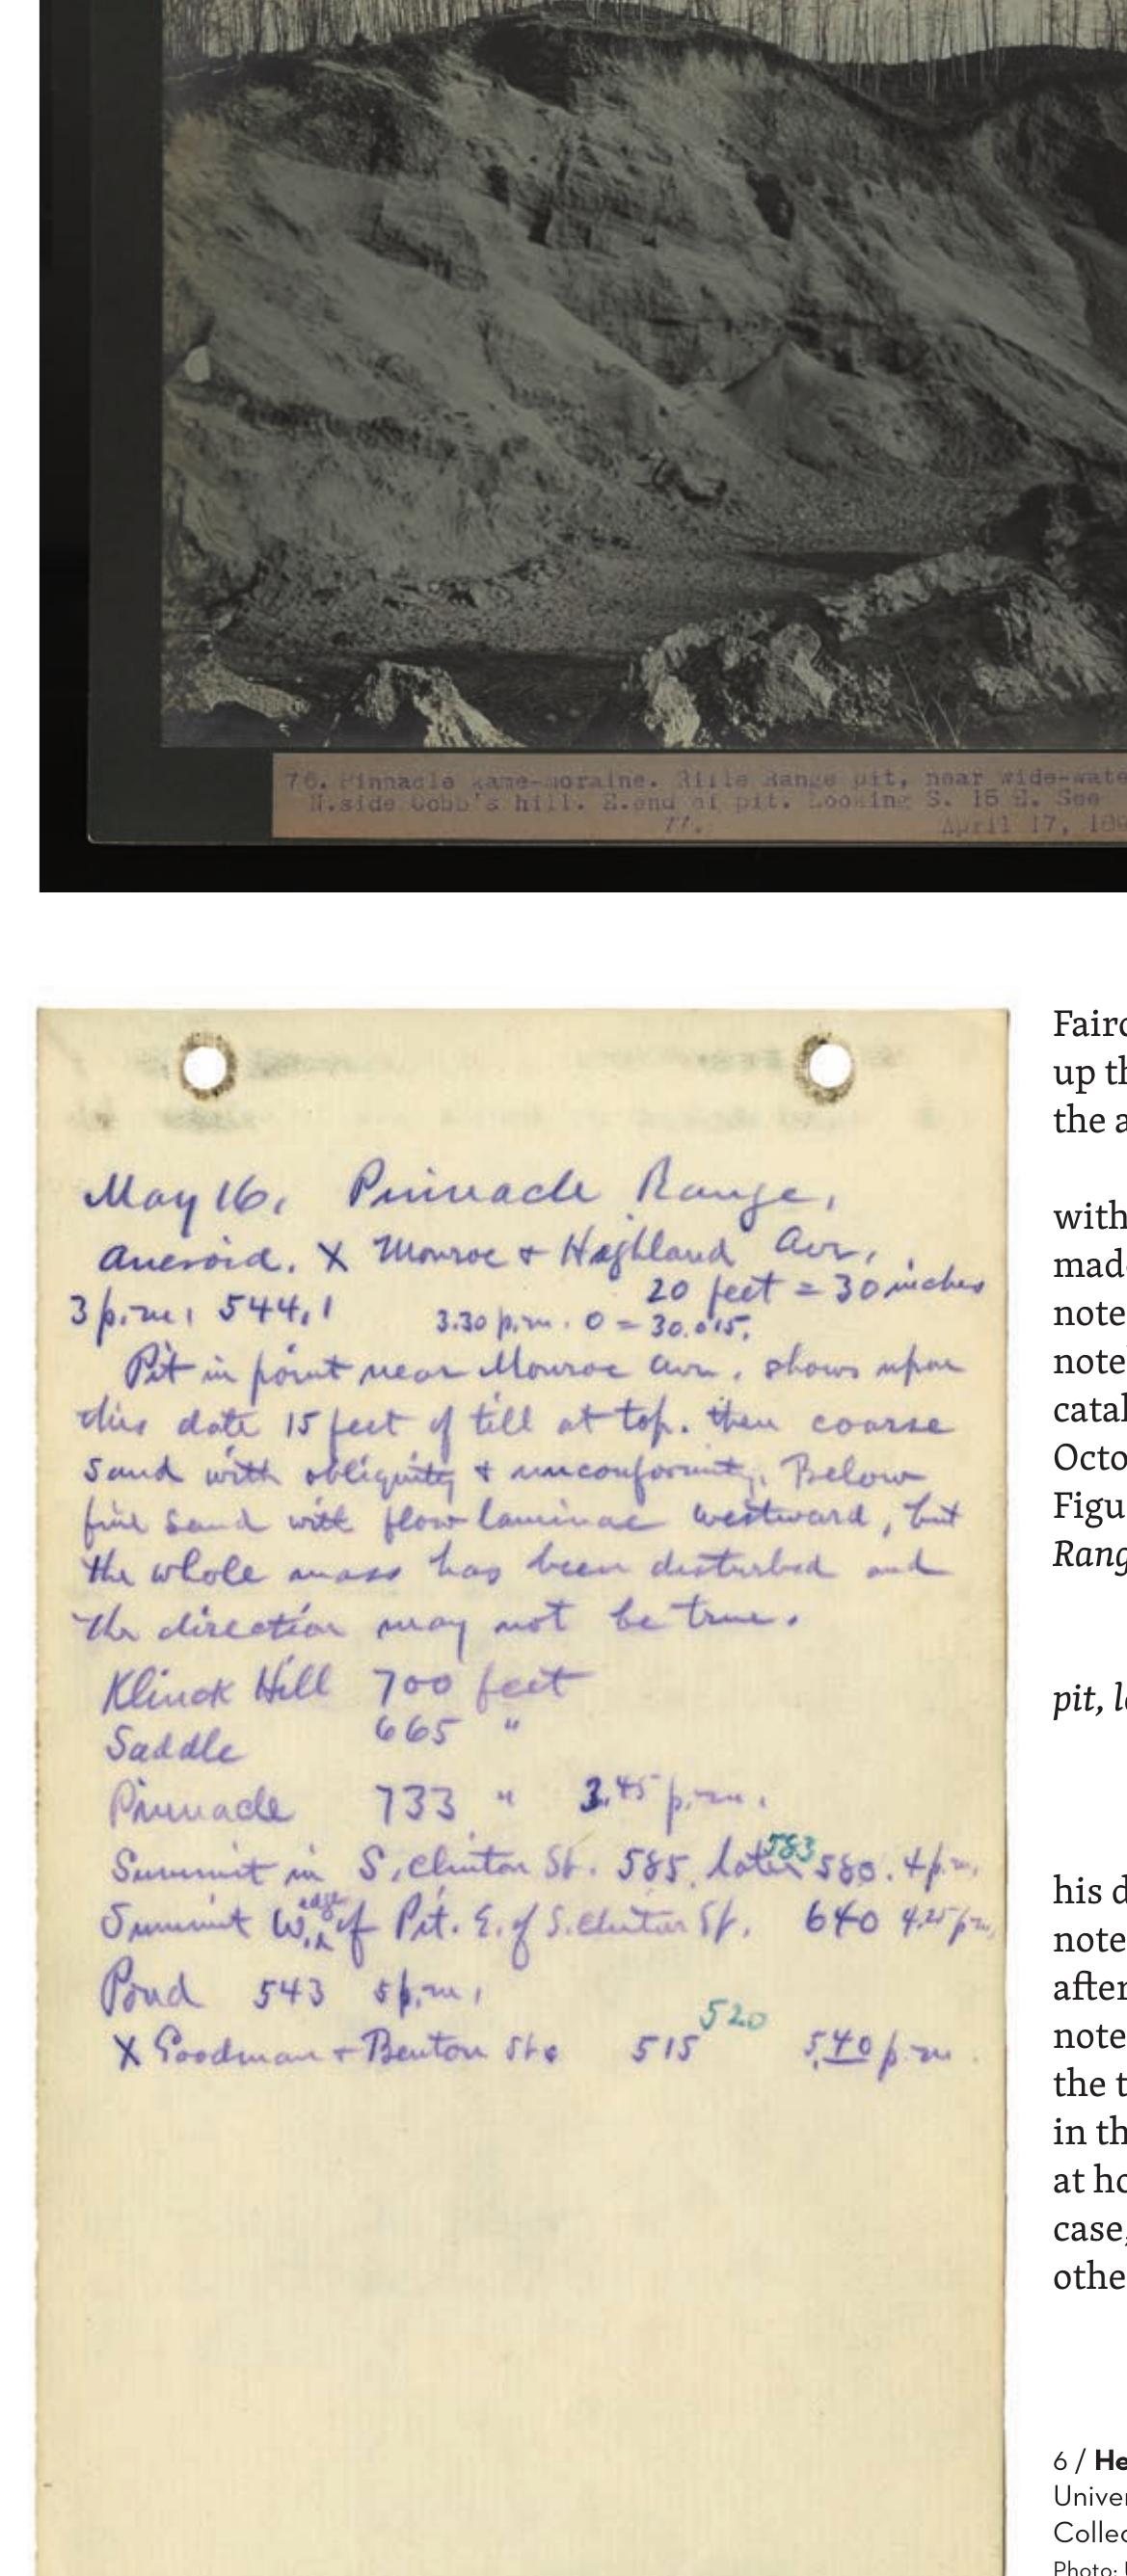 76. Pinnacle kame-moraine. Rifle Range pit, near wide-wate
N.side Cobb's hill. E.end of pit. Looking S. 15 E. See
77. April 17, 189
May 16, Pinnacle Range,
Aneroid. X Monroe + Highland Ave,
20 feet = 30 inches
3 p.m, 544,1 3.30 p.m. 0 = 30.015,
Pit in point near Monroe Ave, shows upon
this date 15 feet of till at top. then coarse
sand with obliquity + unconformity. Below
fine sand with flow laminae westward, but
the whole mass has been disturbed and
the direction may not be true.
Klinck Hill 700 feet
Saddle 665 "
Pinnacle 733 " 3.45 p.m.
Summit in S. Clinton St. 585, later 583 580. 4 p.m.
Summit W. edge of Pit. E. of S. Clinton St. 640 4.25 p.m.
Pond 543 5 p.m,
X Goodman + Benton Sts 515 520 5,40 p.m.
Fairc
up th
the a
with
made
note
note
catal
Octo
Figu
Rang
pit, l
his d
note
after
note
the t
in th
at ho
case,
othe
6 / He
Univer
Collec
Photo: